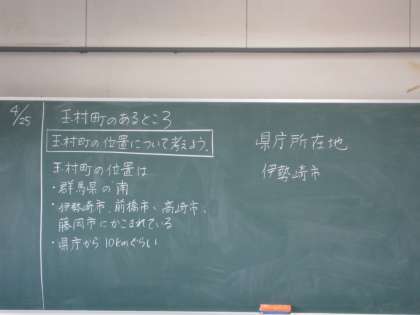 4/25
玉村町のあるところ
玉村町の位置について考えよう。
玉村町の位置は
・群馬県の南
・伊勢崎市、前橋市、高崎市、
藤岡市にかこまれている
・県庁から10kmぐらい
県庁所在地
伊勢崎市